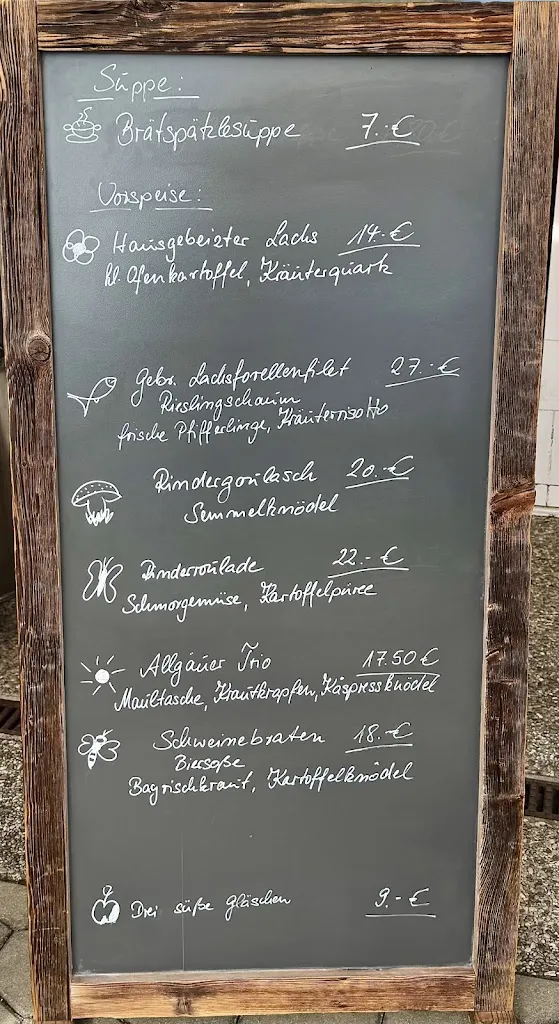 Suppe:
Brätspätzlesuppe 7.-€
Vorspeise:
Hausgebeizter Lachs 14.-€
kl. Ofenkartoffel, Kräuterquark
Gebr. Lachsforellenfilet 27.-€
Rieslingschaum
frische Pfifferlinge, Kräuterrisotto
Rindergoulasch 20.-€
Semmelknödel
Rinderroulade 22.-€
Schmorgemüse, Kartoffelpüree
Allgäuer Trio 17.50€
Maultasche, Krautkrapfen, Käspressknödel
Schweinebraten 18.-€
Biersoße
Bayrischkraut, Kartoffelknödel
Drei süße gläschen 9.-€